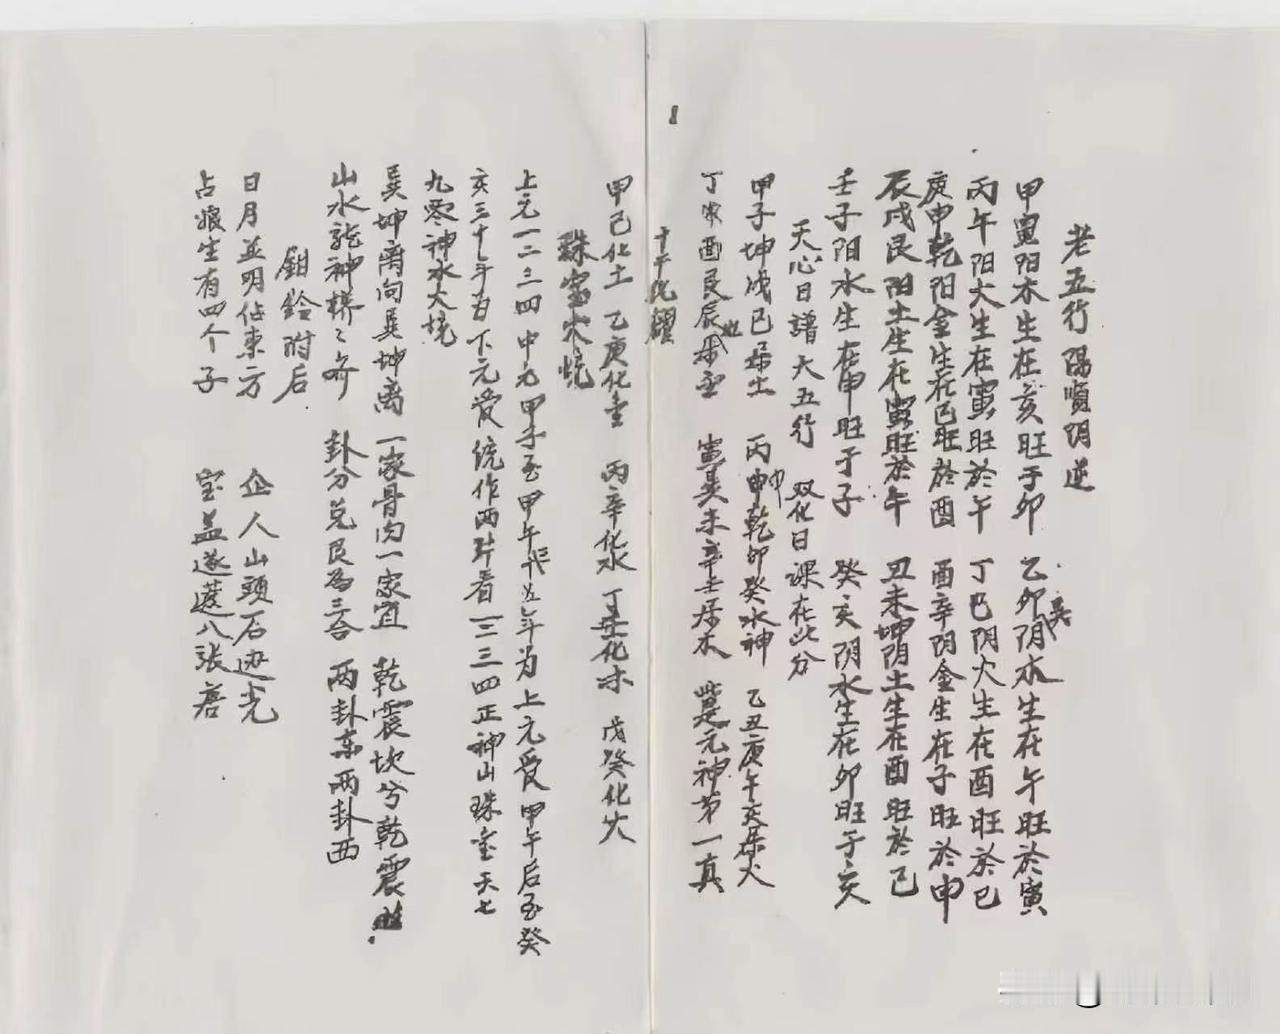 老五行阳顺阴逆
甲寅阳木生在亥旺于卯 乙卯巽阴木生在午旺於寅
丙午阳火生在寅旺於午 丁巳阴火生在酉旺於巳
庚申乾阳金生在巳旺於酉 酉辛阴金生在子旺於申
辰戌艮阳土生在寅旺於午 丑未坤阴土生在酉旺於巳
壬子阳水生在申旺于子 癸亥阴水生在卯旺于亥
天心日谱大五行 双化日课在此分
甲子坤戌巳居土 丙申乾卯癸水神 乙丑庚午亥居火
丁 酉艮辰 居金 寅巽未辛壬居木 元神第一真
十干化曜
甲己化土 乙庚化金 丙辛化水 丁壬化木 戊癸化火
珠宝火坑
上元一二三四中元甲子至甲午 年为上元爱甲午后至癸
亥三十年为下元爱统作两 看一二三四正神山珠宝 七
九零神水火坑
巽坤离向巽坤离 一家骨肉一家宜 乾震坎兮乾震
山水龙神样々奇 卦分兑艮为三合 两卦东两卦西
钳铃附后
日月並明佔东方 企人山头石边光
占娘生有四个子 宝盖 八张